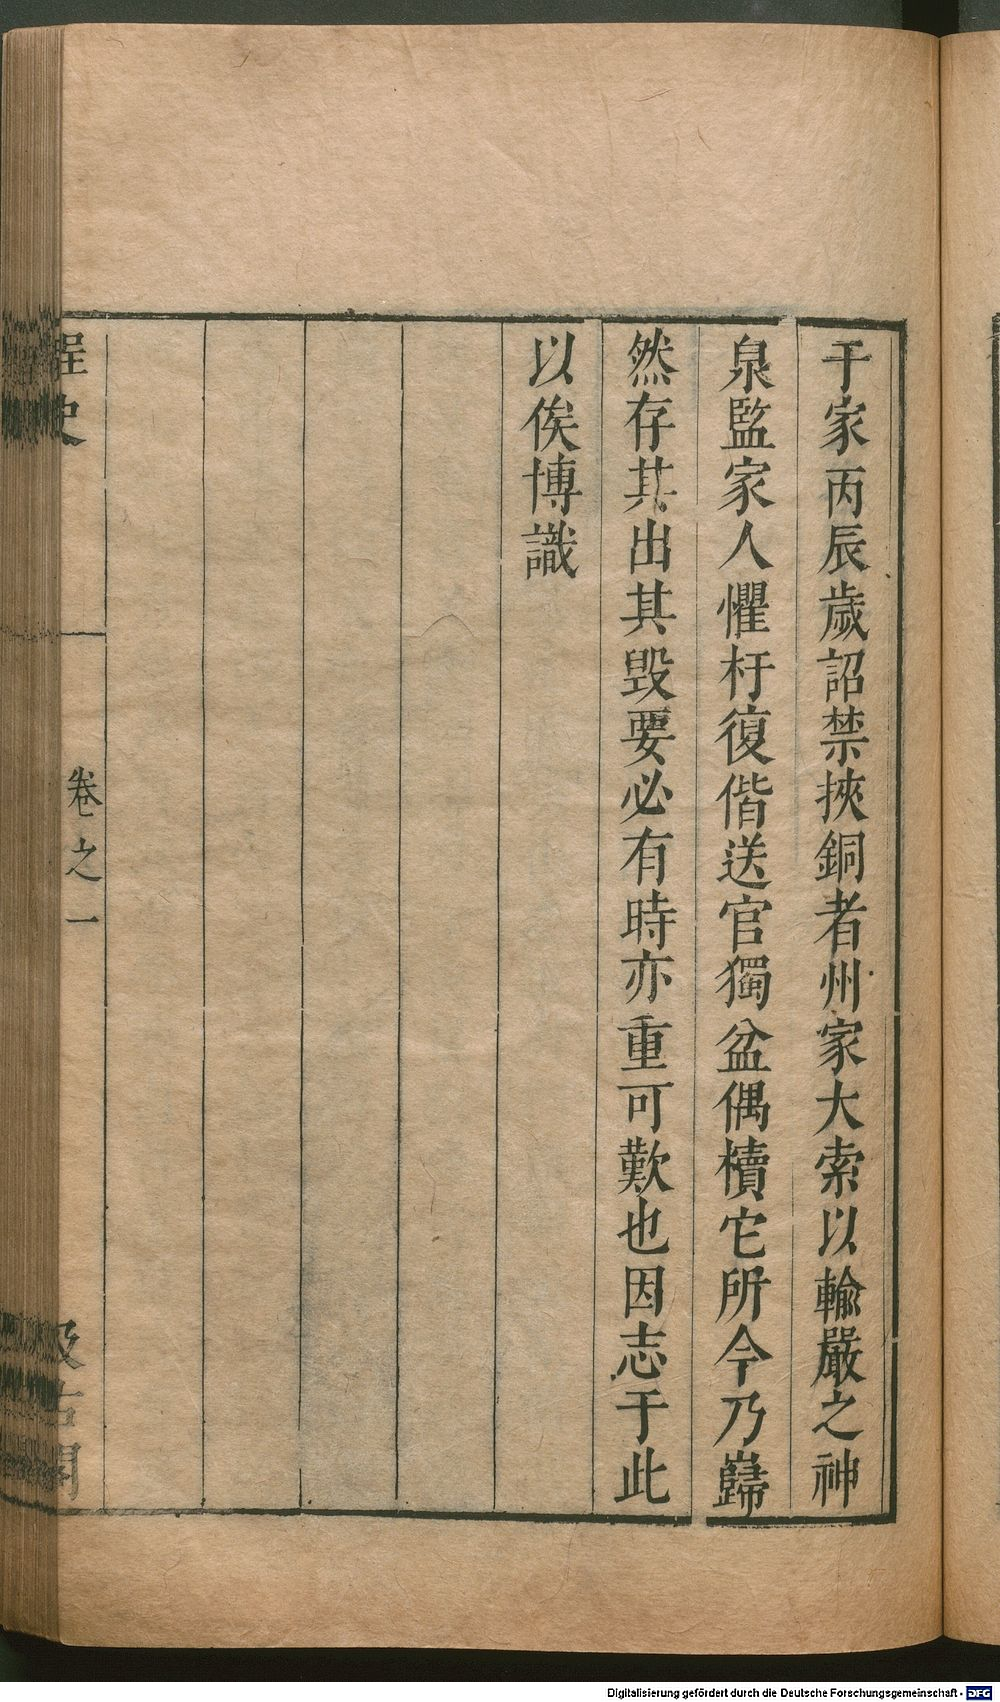 于家丙辰歲詔禁挾銅者州家大索以輸嚴之神
泉監家人懼杅復偕送官獨盆偶櫝它所今乃巋
然存其出其毀要必有時亦重可歎也因志于此
以俟博識
桯史
卷之一
汲古閣
Digitalisierung gefördert durch die Deutsche Forschungsgemeinschaft - DFG